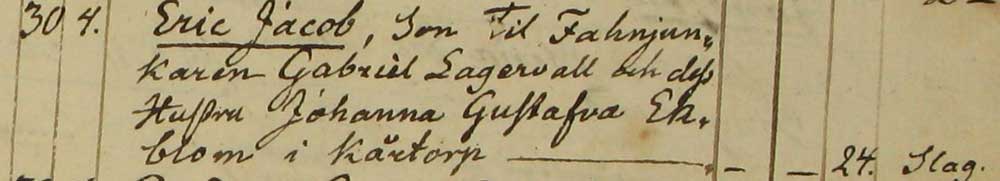 30 4. Eric Jacob, Son Til Fahnjun„
karen Gabriel Lagervall och dess
Hustru Johanna Gustafva Ek„
blom i Kårtorp — — — 24. Slag.